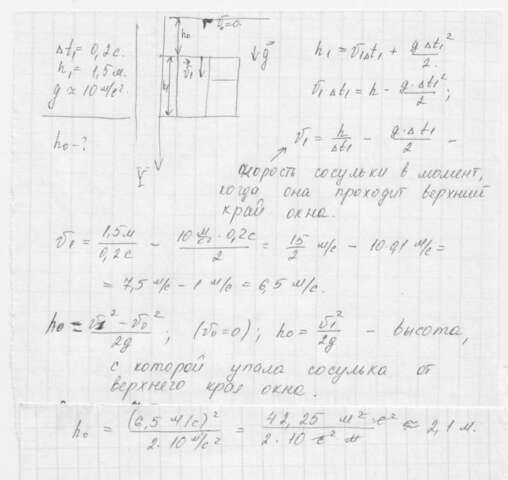 Δt₁ = 0,2 с.
h₁ = 1,5 м.
g ≈ 10 м/с².
h₀ - ?
h₀
v₀ = 0.
h
v₁
g
Y
h₁ = v₁Δt₁ + gΔt₁²/2
v₁Δt₁ = h - g·Δt₁²/2;
v₁ = h/Δt₁ - g·Δt₁/2 -
скорость сосульки в момент,
когда она проходит верхний
край окна.
v₁ = 1,5 м/0,2 с - 10 м/с²·0,2 с/2 = 15/2 м/с - 10·0,1 м/с =
= 7,5 м/с - 1 м/с = 6,5 м/с.
h₀ = v₁² - v₀²/2g; (v₀=0); h₀ = v₁²/2g - высота,
с которой упала сосулька от
верхнего края окна.
h₀ = (6,5 м/с)²/2·10 м/с² = 42,25 м² с²/2·10 с² м ≈ 2,1 м.